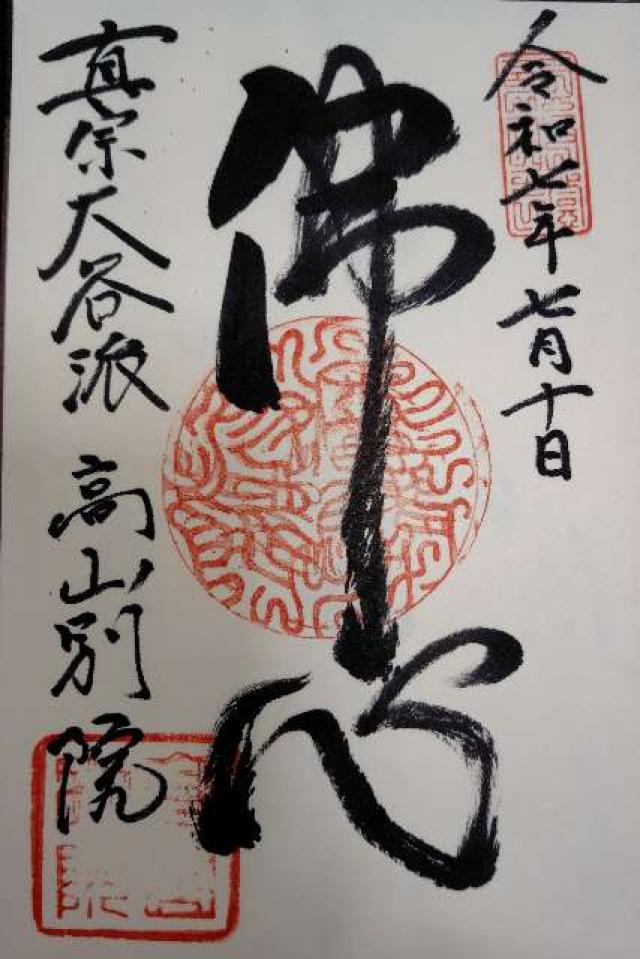 令和七年七月十日
佛心
真宗大谷派 高山別院